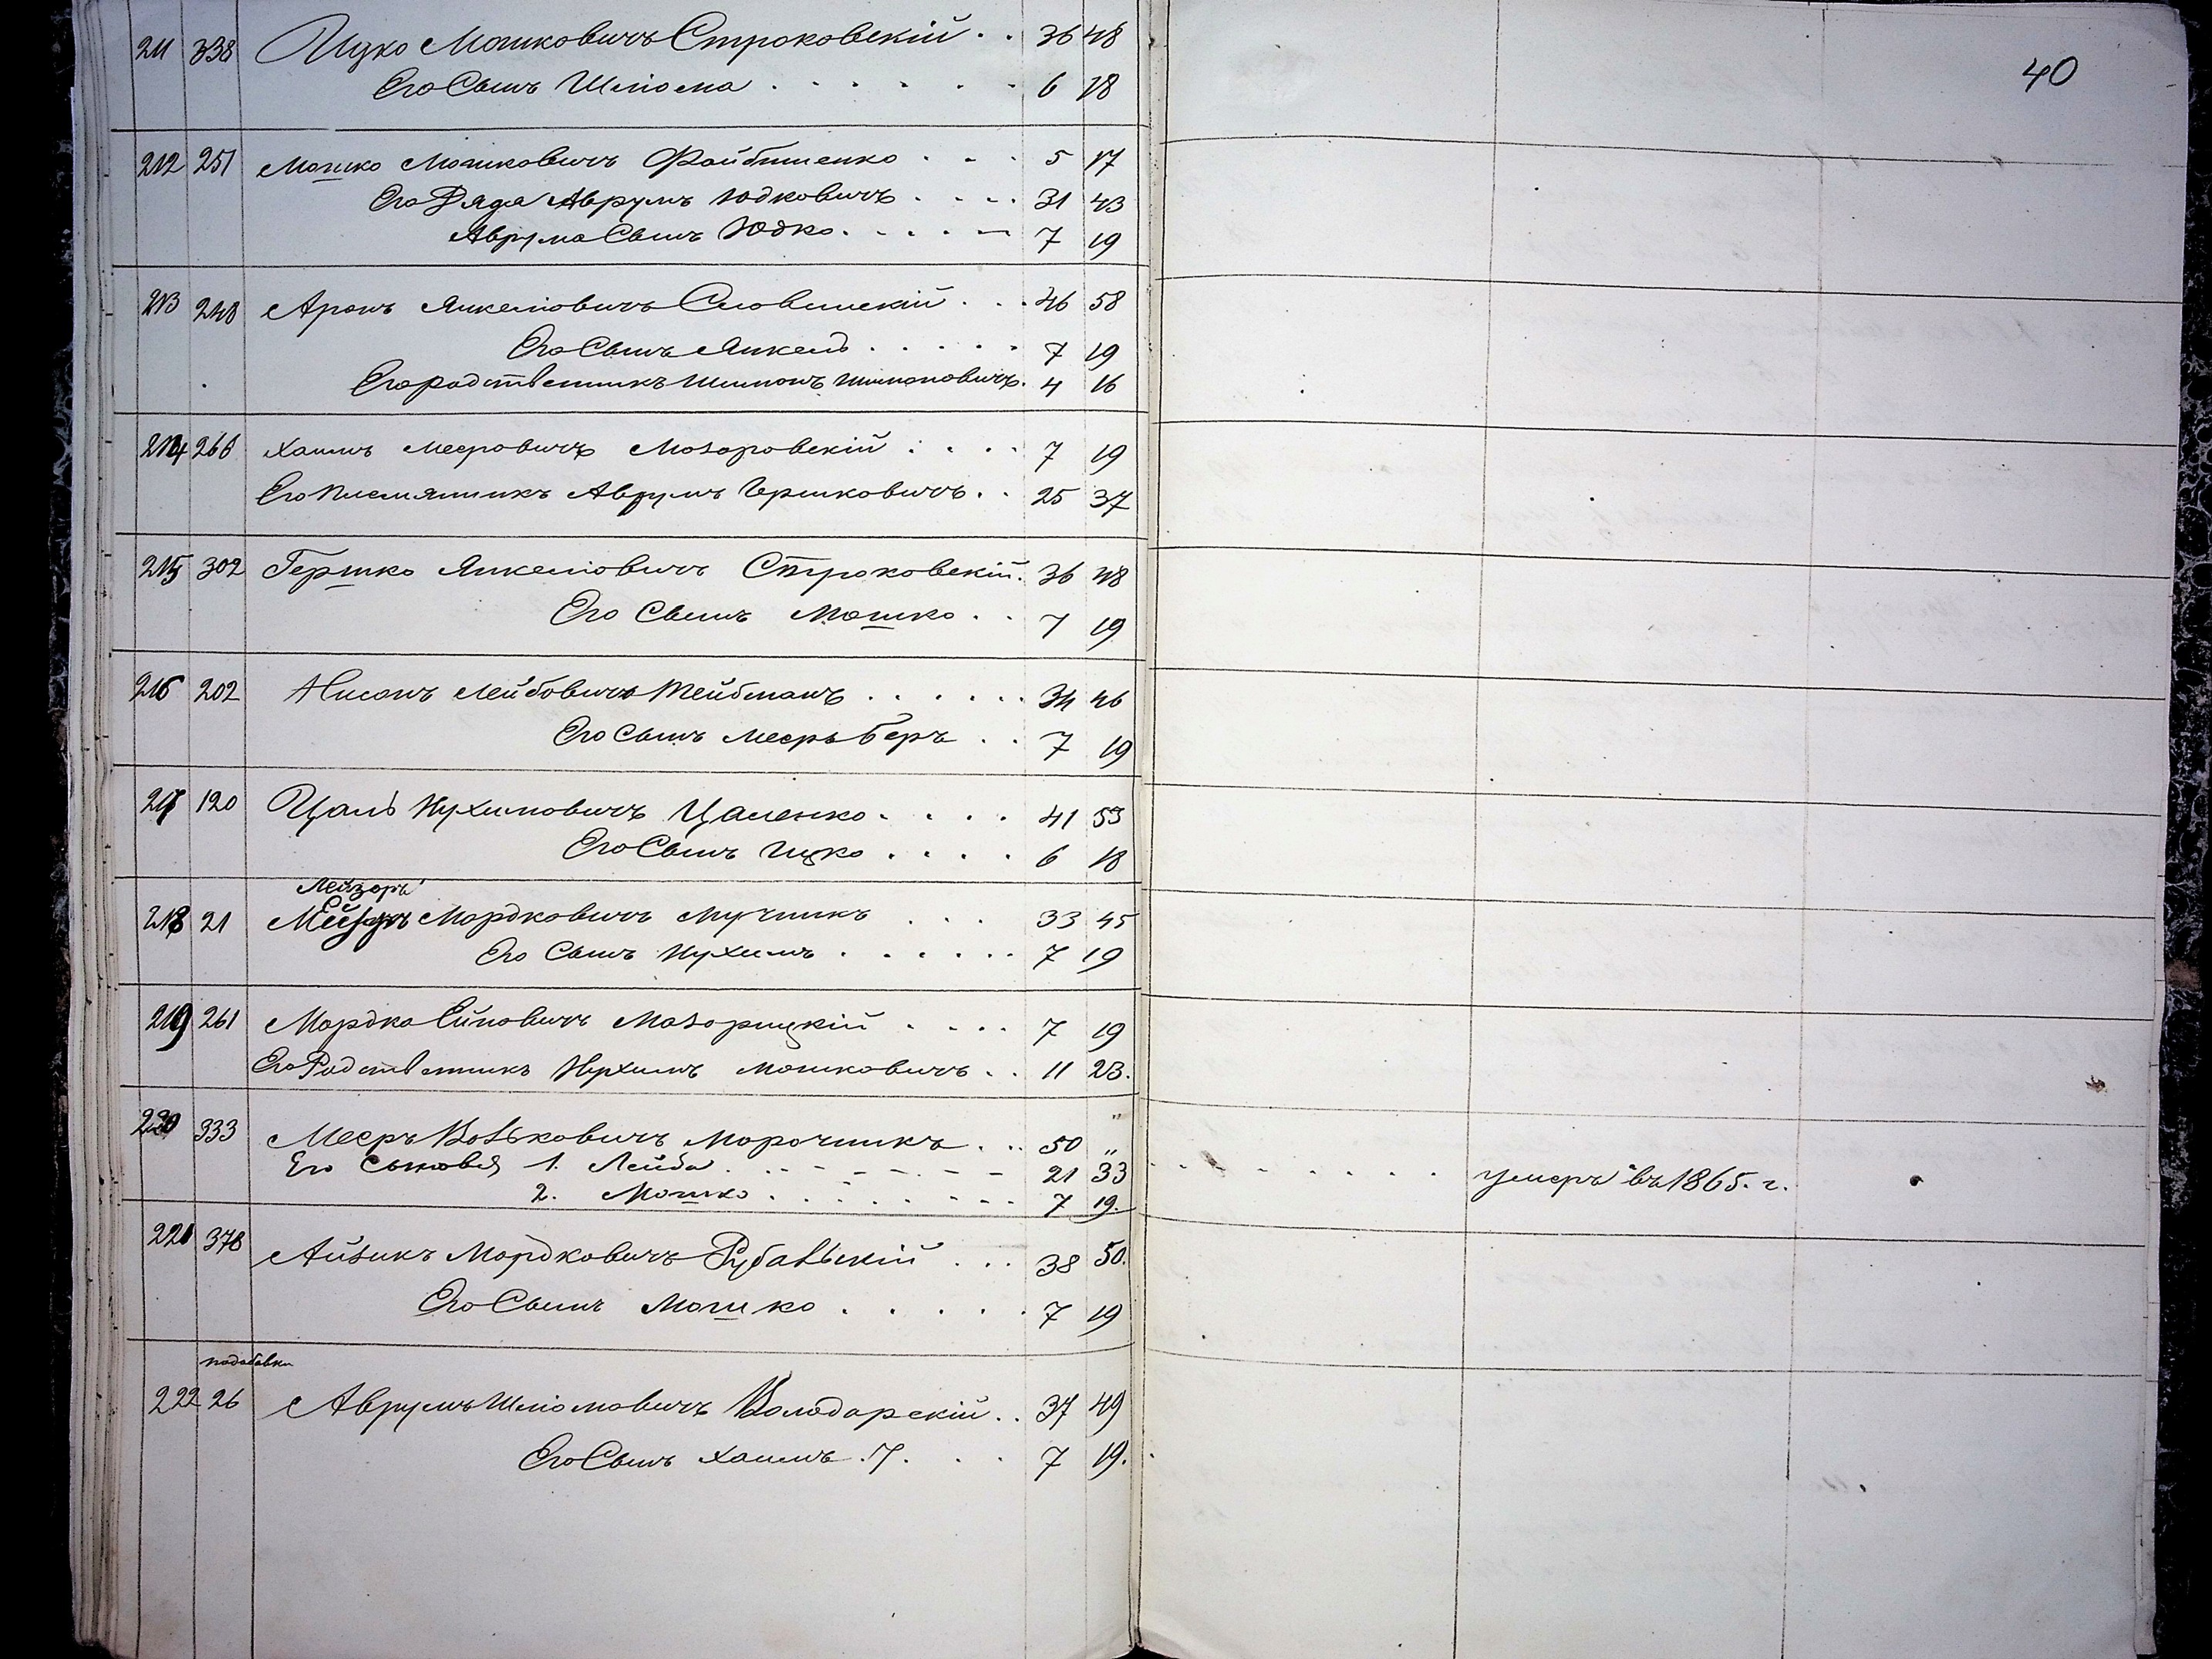 40
211 338 Ицко Мошковичъ Строковскій . . 36 48
Его Сынъ Шліома . . . . . . 6 18
212 251 Мошко Мошковичъ Файбишенко . . . 5 17
Его Дядя Аврумъ Юдковичъ . . . . 31 43
Аврума Сынъ Юдко . . . . 7 19
213 248 Аронъ Янкеліовичъ Словинскій . . . 46 58
Его Сынъ Янкель . . . . . 7 19
Его родственникъ Шимонъ Шимоновичъ . 4 16
214 Хаимъ Мееровичъ Мозаровскій . . . . 7 19
Его племянникъ Аврумъ Гершковичъ . . 25 37
215 302 Гершко Янкеліовичъ Строковскій . 36 48
Его Сынъ Мошко . . 7 19
216 202 Нисонъ Лейбовичъ Тейбманъ . . . . . . 34 46
Его Сынъ Меерь Беръ . . 7 19
217 120 Цаль Нухимовичъ Цаленко . . . . 41 53
Его Сынъ Ицко . . . . 6 18
Лейзоръ
218 21 Мордковичъ Мучникъ . . . 33 45
Его Сынъ Нухимъ . . . . . . 7 19
219 261 Мордко Мозорицкій . . . . 7 19
Его Родственникъ Нухимъ Мошковичъ . . 11 23.
220 333 Мееръ Вольковичъ Морочникъ . . . 50 „
Его сыновья 1. Лейба . . . . . . . 21 33 . . . . . . . . умеръ въ 1865. г.
2. Мошко . . . . . . . . 7 19.
221 378 Айзикъ Мордковичъ Рубальскій . . . 38 50.
Его Сынъ Мошко . . . . . 7 19
подобавки
222 26 Аврумъ Шліомовичъ Володарскій . . 37 49
Его Сынъ Хаимъ . 7 . . . 7 19.